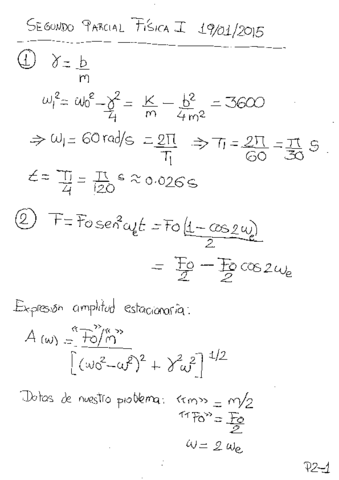 SEGUNDO PARCIAL FÍSICA I 19/01/2015
① γ = b/m
ω₁² = ω₀² - γ²/4 = K/m - b²/4m² = 3600
⇒ ω₁ = 60 rad/s = 2π/T₁ ⇒ T₁ = 2π/60 = π/30 s
t = T₁/4 = π/120 s ≈ 0.026 s
② F = F₀ sen² ωₑt = F₀ (1 - cos 2ωₑ)/2
= F₀/2 - F₀/2 cos 2ωₑ
Expresión amplitud estacionaria:
A(ω) = "F₀"/"m" / [(ω₀² - ω²)² + γ²ω²]^1/2
Datos de nuestro problema: "m" = m/2
"F₀" = F₀/2
ω = 2ωₑ
P2-1